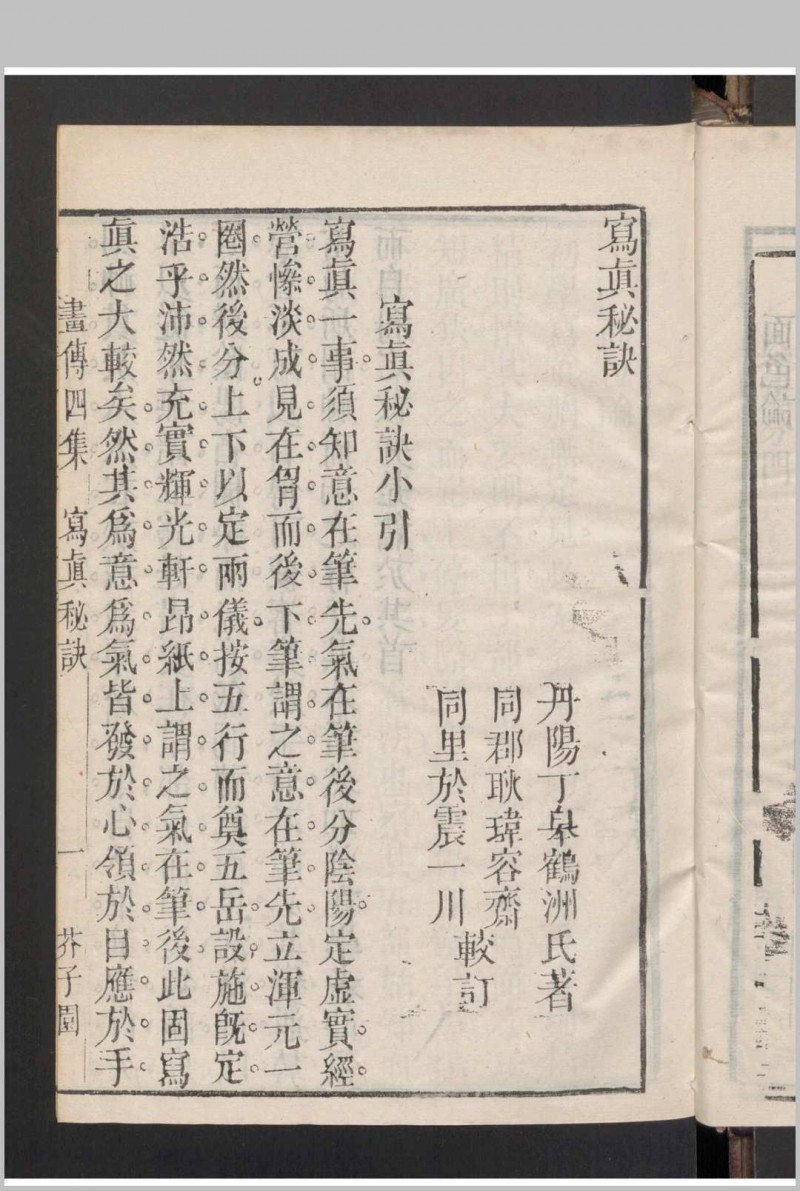 寫眞秘訣
丹陽丁臯鶴洲氏著
同郡耿瑋容齋
同里於震一川
較訂
寫眞秘訣小引
寫眞一事須知意在筆先氣在筆後分陰陽定虛實經
營慘淡成見在胷而後下筆謂之意在筆先立渾元一
圈然後分上下以定兩儀按五行而奠五岳設施旣定
浩乎沛然充實輝光軒昂紙上謂之氣在筆後此固寫
眞之大較矣然其爲意爲氣皆發於心領於目應於手
畫傳四集 寫眞秘訣 一 芥子園